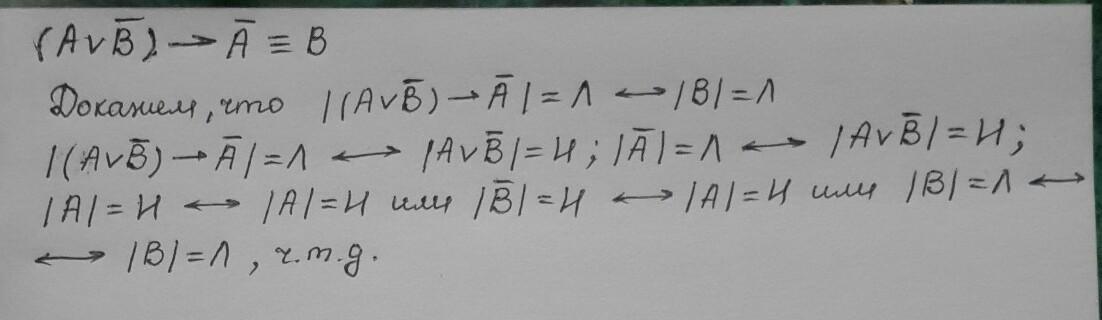 (A∨B̅) → A̅ ≡ B
Докажем, что |(A∨B̅) → A̅| = Л ⟷ |B| = Л
|(A∨B̅) → A̅| = Л ⟷ |A∨B̅| = И; |A̅| = Л ⟷ |A∨B̅| = И;
|A| = И ⟷ |A| = И или |B̅| = И ⟷ |A| = И или |B| = Л ⟷
⟷ |B| = Л, ч.т.д.